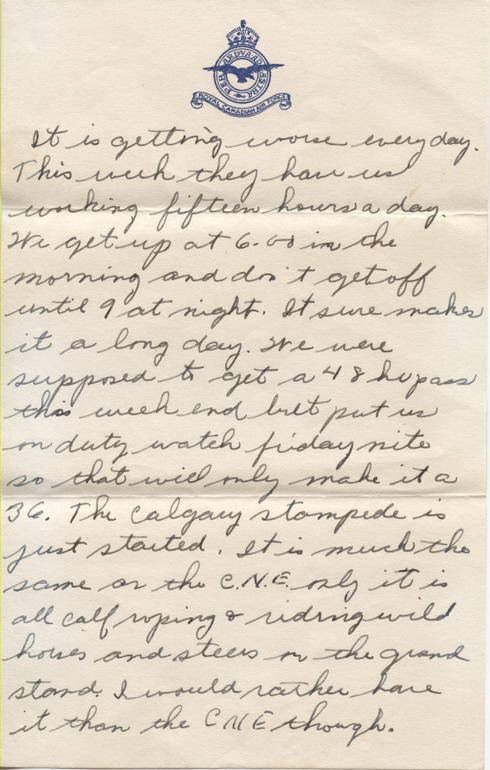 PER ARDVA AD ASTRA
ROYAL CANADIAN AIR FORCE
It is getting worse every day.
This week they have us
working fifteen hours a day.
We get up at 6-00 in the
morning and don't get off
until 9 at night. It sure makes
it a long day. We were
supposed to get a 48 hr pass
this week end but put us
on duty watch friday nite
so that will only make it a
36. The Calgary stampede is
just started. It is much the
same as the C.N.E. only it is
all calf roping & riding wild
horses and steers on the grand
stand. I would rather have
it than the CNE though.